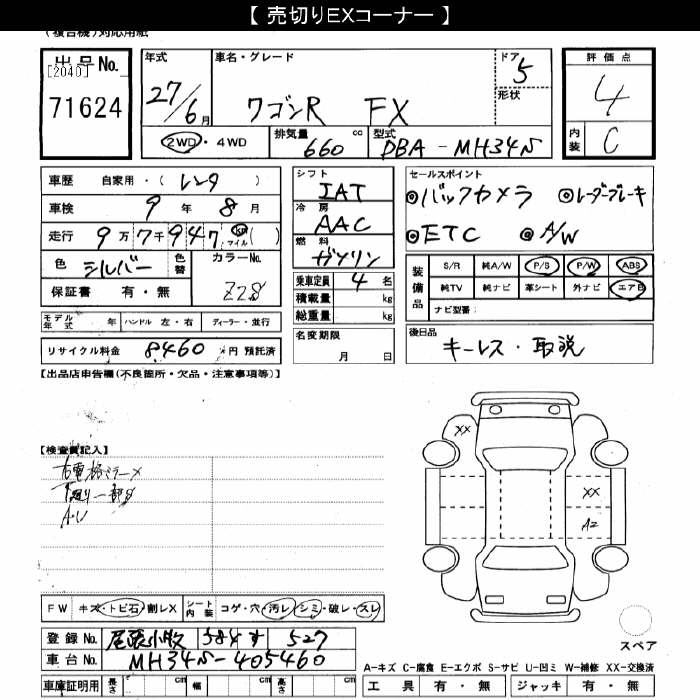 【 売切りEXコーナー 】
(複合機)対応用紙
出品No.
[2040]
71624
年式
27/6月
車名・グレード
ワゴンR FX
ドア
5
形状
2WD・4WD
排気量
660 cc
型式
DBA-MH34S
評価点
4
内装
C
車歴 自家用・( レンタ )
車検 9 年 8 月
走行 9万7千947 km マイル ( )
色 シルバー 色替
カラーNo.
Z2S
保証書 有・無
モデル年式 年 ハンドル 左・右 ディーラー・並行
リサイクル料金 8460 円 預託済
シフト
IAT
冷房
AAC
燃料
ガソリン
乗車定員 4 名
積載量 kg
総重量 kg
名変期限
月 日
セールスポイント
◎バックカメラ ◎レーダーブレーキ
◎ETC ◎A/W
装備品
S/R 純A/W P/S P/W ABS
純TV 純ナビ 革シート 外ナビ エアB
ナビ型番:
後日品
キーレス・取説
【出品店申告欄(不良箇所・欠品・注意事項等)】
【検査員記入】
右電格ミラー×
下廻り一部S
A・U
XX
XX
A2
FW キズ・トビ石・割レX シート内装 コゲ・穴・汚レ・シミ・破レ・スレ
登録No. 尾張小牧 584 す 527
車台No. MH34S-405460
車庫証明用 長さ cm 幅 cm 高さ cm
スペア
A-キズ C-腐食 E-エクボ S-サビ U-凹ミ W-補修 XX-交換済
工具 有・無 ジャッキ 有・無